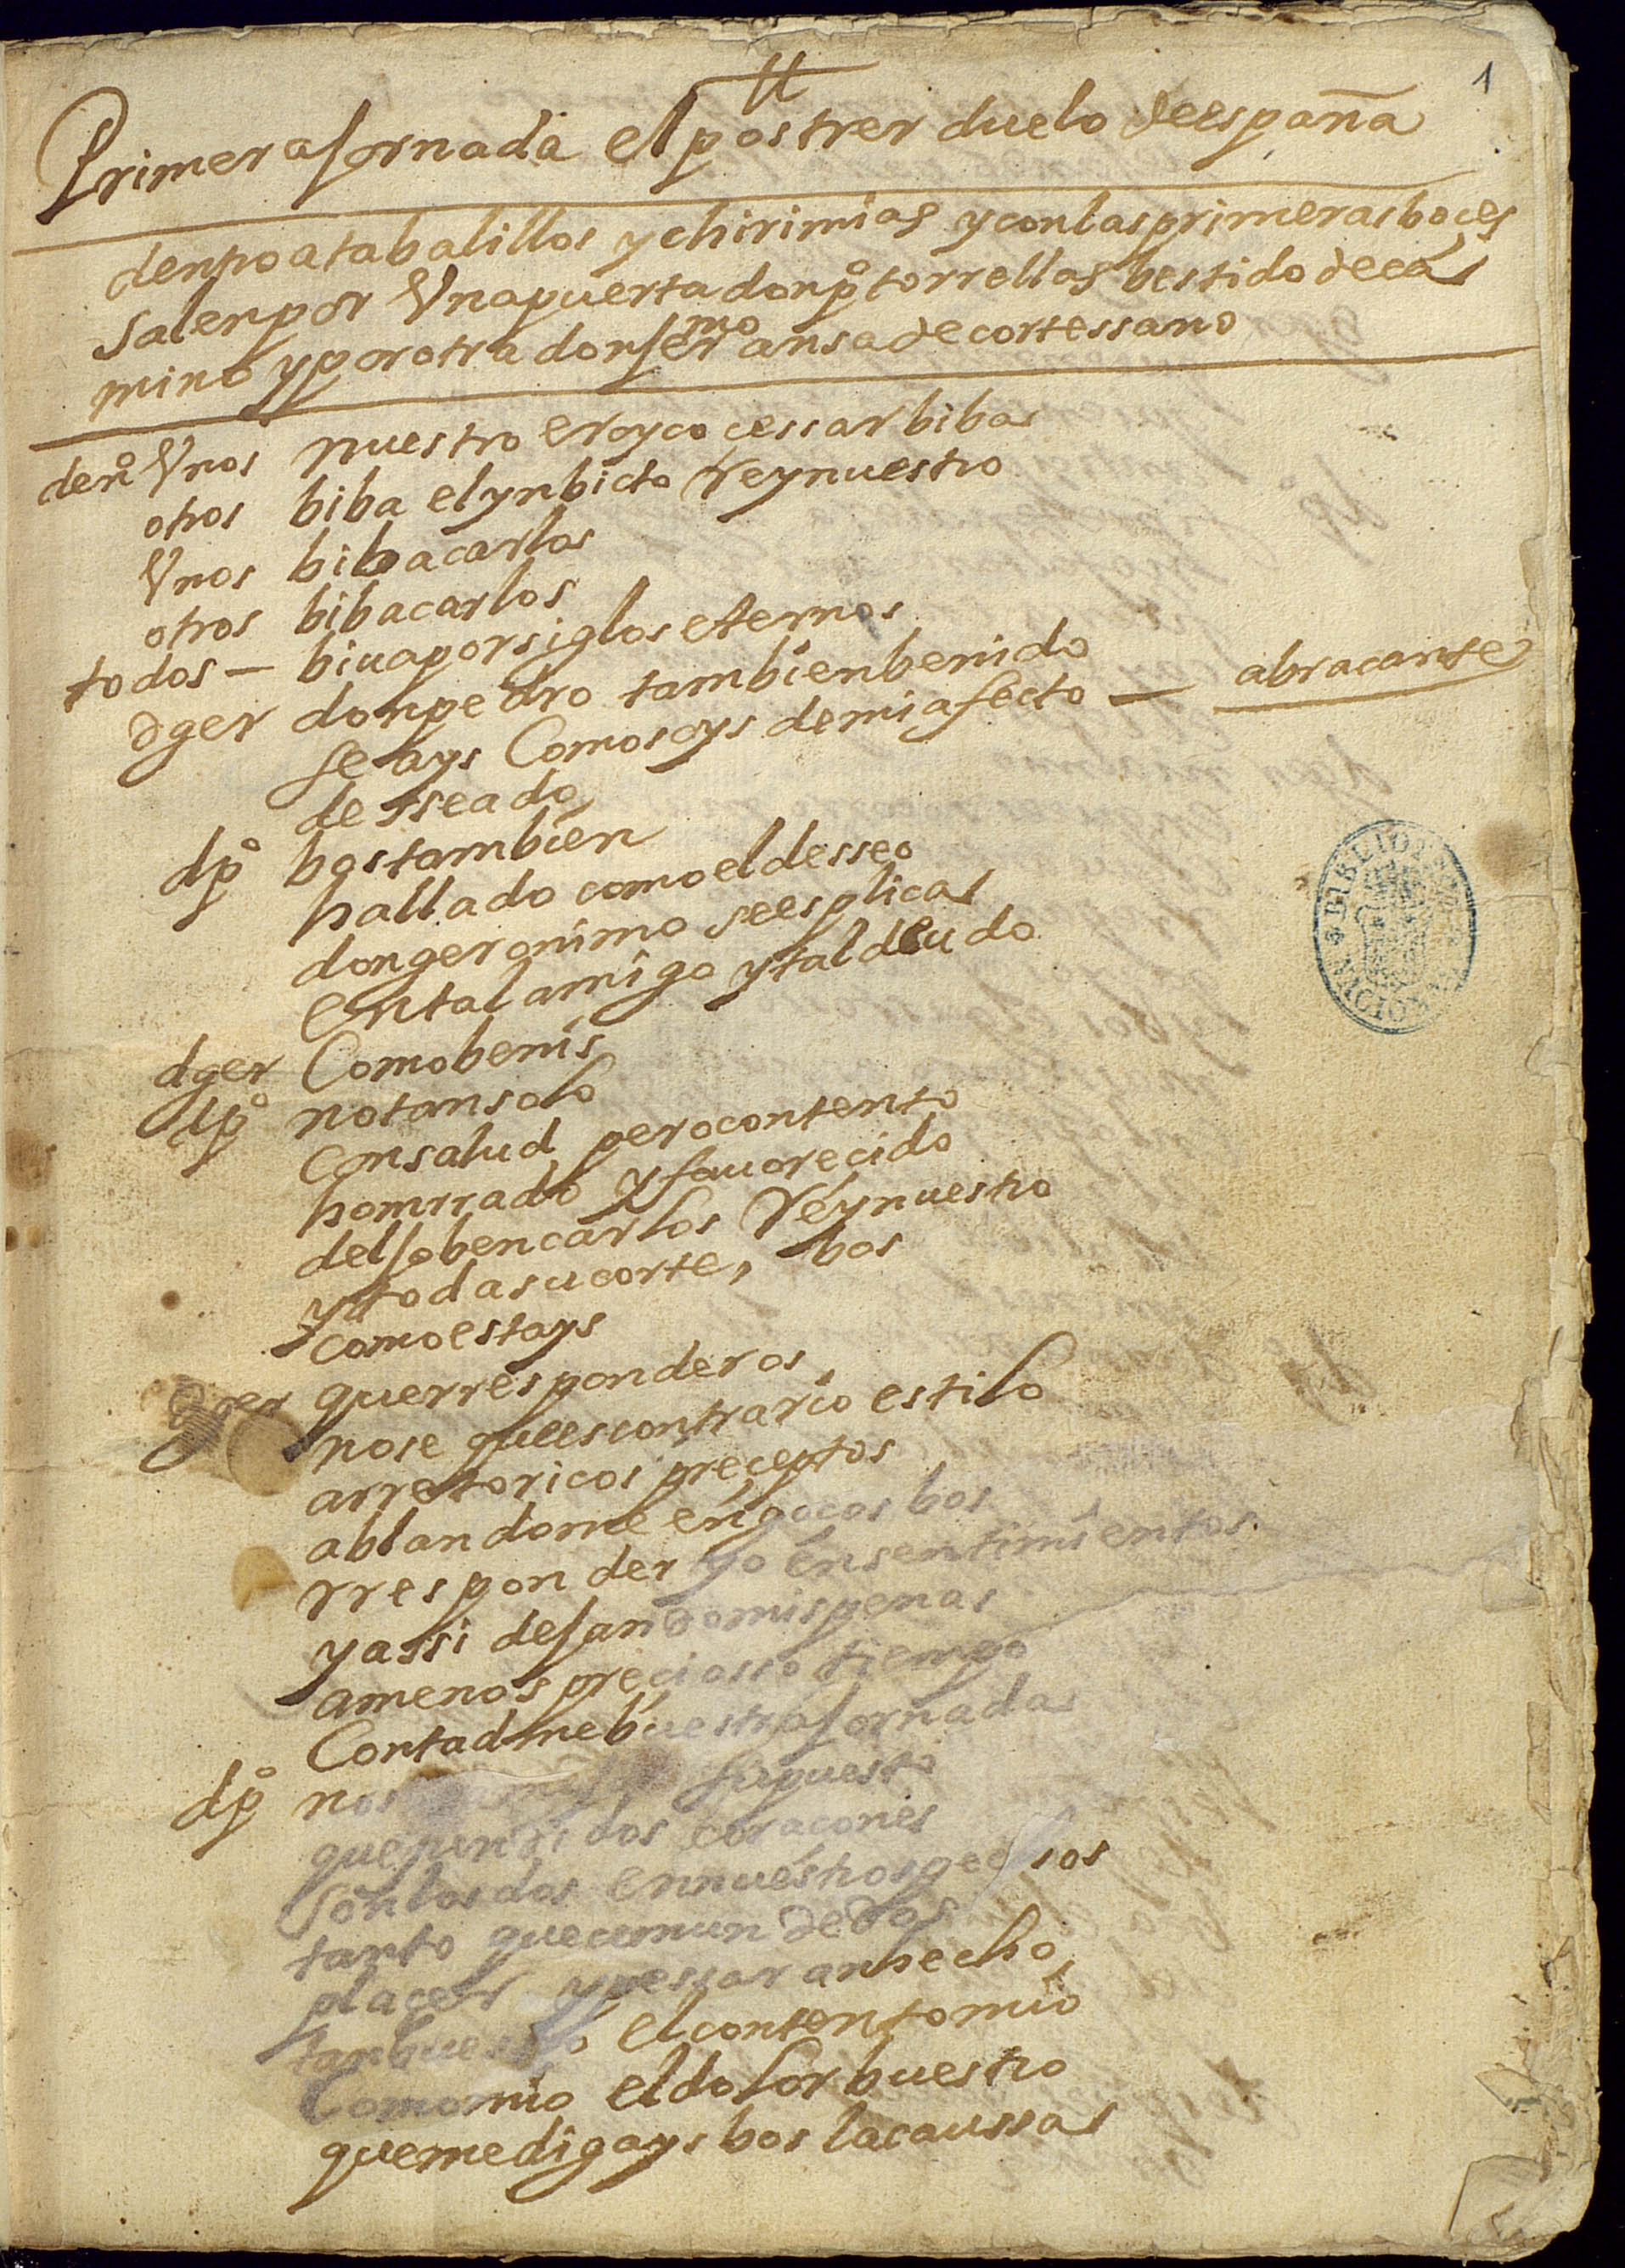 1
Primera Jornada el postrer duelo de españa
dentro atabalillos y chirimias y con las primeras boces
salen por Una puerta don po torrellas bestido de ca
mino y por otra don Jermo ansa de cortessano
deno Unos nuestro eroyco cessar biba
otros biba el ynbicto Rey nuestro
Unos biba carlos
otros biba carlos
todos — biua por siglos eternos
dger don pedro tambien benido
seays Como soys de mi afecto — abracanse
desseado
dpo bos tambien
hallado como el desseo
don geronimo se esplica
en tal amigo y tal deudo
dger Como benis
dpo no tan solo
con salud pero contento
homrrado y fauorecido
del Joben carlos Rey nuestro
y toda su corte, bos
como estays
dger querresponderos
no se que es contrario estilo
arretoricos preceptos
ablandome en gocos bos
rresponder yo en sentimientos
y assi dejando mis penas
a menos preciosso tiempo
Contadme buestra Jornada
dpo supuesto
que dos coracones
son los dos en nuestros pechos
tanto que comun de dos
placer y pessar an hecho
tan buestro el contento mio
Como mio el dolor buestro
que me digays bos la caussa
BIBLIOTECA NACIONAL